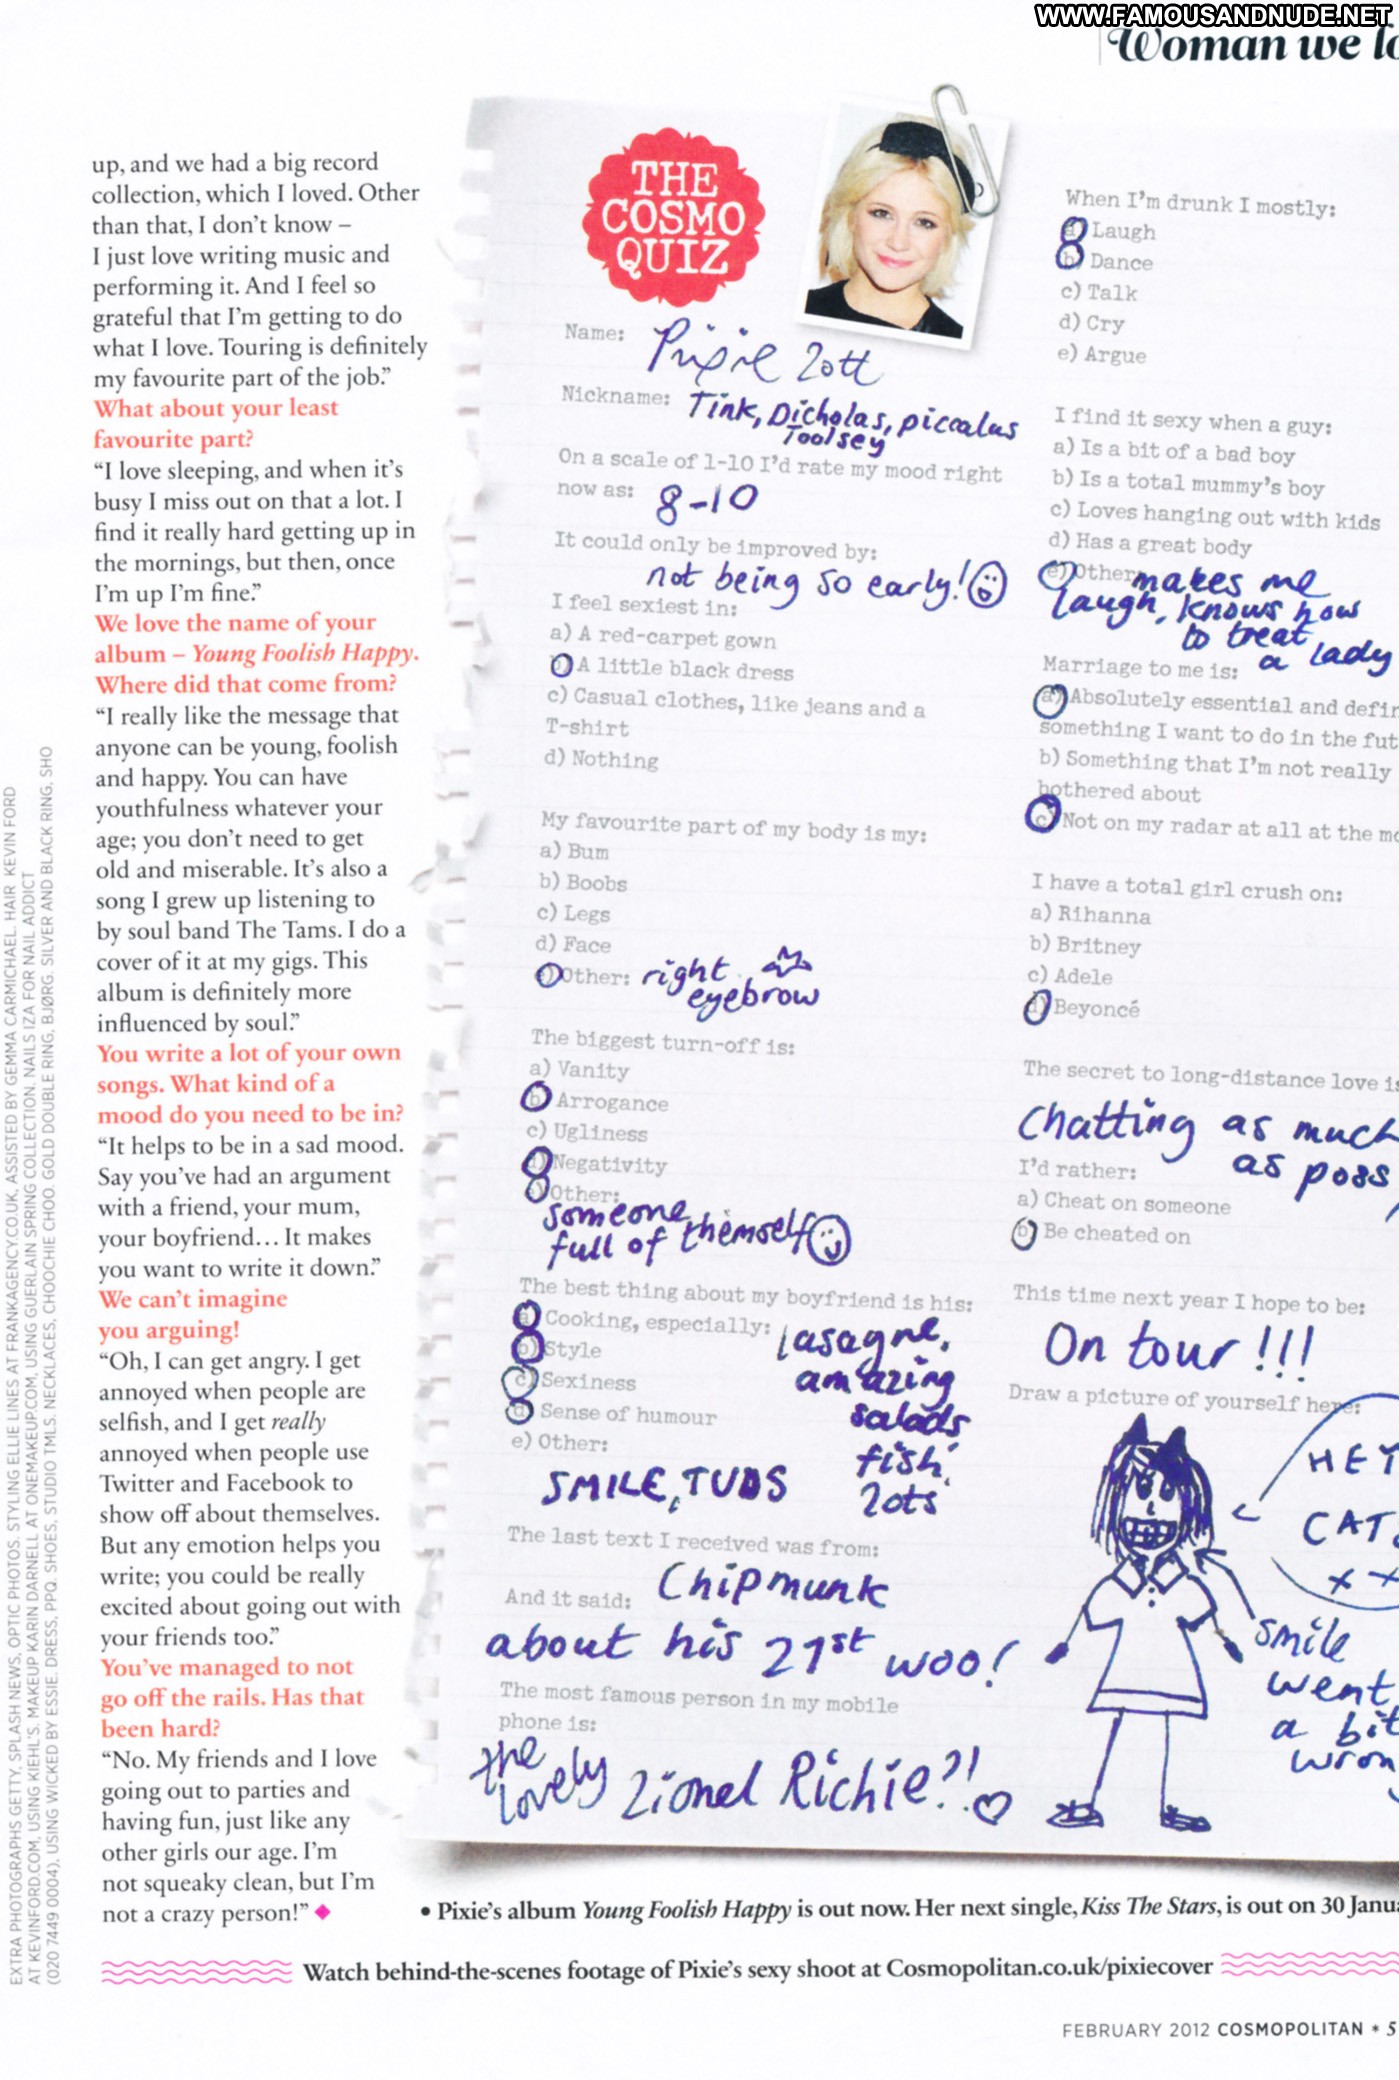 WWW.FAMOUSANDNUDE.NET
Woman we lo
up, and we had a big record
collection, which I loved. Other
than that, I don't know –
I just love writing music and
performing it. And I feel so
grateful that I'm getting to do
what I love. Touring is definitely
my favourite part of the job."
What about your least
favourite part?
"I love sleeping, and when it's
busy I miss out on that a lot. I
find it really hard getting up in
the mornings, but then, once
I'm up I'm fine."
We love the name of your
album – Young Foolish Happy.
Where did that come from?
"I really like the message that
anyone can be young, foolish
and happy. You can have
youthfulness whatever your
age; you don't need to get
old and miserable. It's also a
song I grew up listening to
by soul band The Tams. I do a
cover of it at my gigs. This
album is definitely more
influenced by soul."
You write a lot of your own
songs. What kind of a
mood do you need to be in?
"It helps to be in a sad mood.
Say you've had an argument
with a friend, your mum,
your boyfriend… It makes
you want to write it down."
We can't imagine
you arguing!
"Oh, I can get angry. I get
annoyed when people are
selfish, and I get really
annoyed when people use
Twitter and Facebook to
show off about themselves.
But any emotion helps you
write; you could be really
excited about going out with
your friends too."
You've managed to not
go off the rails. Has that
been hard?
"No. My friends and I love
going out to parties and
having fun, just like any
other girls our age. I'm
not squeaky clean, but I'm
not a crazy person!"
EXTRA PHOTOGRAPHS GETTY, SPLASH NEWS, OPTIC PHOTOS. STYLING ELLIE LINES AT FRANKAGENCY.CO.UK, ASSISTED BY GEMMA CARMICHAEL. HAIR KEVIN FORD
AT KEVINFORD.COM, USING KIEHL'S. MAKEUP KARIN DARNELL AT ONEMAKEUP.COM, USING GUERLAIN SPRING COLLECTION. NAILS IZA FOR NAIL ADDICT
(020 7449 0004), USING WICKED BY ESSIE. DRESS, PPQ. SHOES, STUDIO TMLS. NECKLACES, CHOOCHIE CHOO. GOLD DOUBLE RING, BJØRG. SILVER AND BLACK RING, SHO
THE
COSMO
QUIZ
Name: Pixie Lott
Nickname: Tink, Dicholas, piccalus
Toolsey
On a scale of 1-10 I'd rate my mood right
now as: 8-10
It could only be improved by:
not being so early!
I feel sexiest in:
a) A red-carpet gown
b) A little black dress
c) Casual clothes, like jeans and a
T-shirt
d) Nothing
My favourite part of my body is my:
a) Bum
b) Boobs
c) Legs
d) Face
e) Other: right
eyebrow
The biggest turn-off is:
a) Vanity
b) Arrogance
c) Ugliness
d) Negativity
e) Other:
someone
full of themself
The best thing about my boyfriend is his:
a) Cooking, especially: lasagne,
b) Style
amazing
c) Sexiness
salads
d) Sense of humour
fish,
e) Other:
lots
SMILE, TUDS
The last text I received was from:
Chipmunk
And it said:
about his 21st woo!
The most famous person in my mobile
phone is:
the
lovely Lionel Richie?!
When I'm drunk I mostly:
a) Laugh
b) Dance
c) Talk
d) Cry
e) Argue
I find it sexy when a guy:
a) Is a bit of a bad boy
b) Is a total mummy's boy
c) Loves hanging out with kids
d) Has a great body
e) Other: makes me
laugh, knows how
to treat
a lady
Marriage to me is:
a) Absolutely essential and defin
something I want to do in the fut
b) Something that I'm not really
bothered about
c) Not on my radar at all at the mo
I have a total girl crush on:
a) Rihanna
b) Britney
c) Adele
d) Beyoncé
The secret to long-distance love is
Chatting as much
as poss
I'd rather:
a) Cheat on someone
b) Be cheated on
This time next year I hope to be:
On tour!!!
Draw a picture of yourself here:
HEY
CATS
x x
smile
went
a bit
wrong
• Pixie's album Young Foolish Happy is out now. Her next single, Kiss The Stars, is out on 30 Janua
Watch behind-the-scenes footage of Pixie's sexy shoot at Cosmopolitan.co.uk/pixiecover
FEBRUARY 2012 COSMOPOLITAN * 5